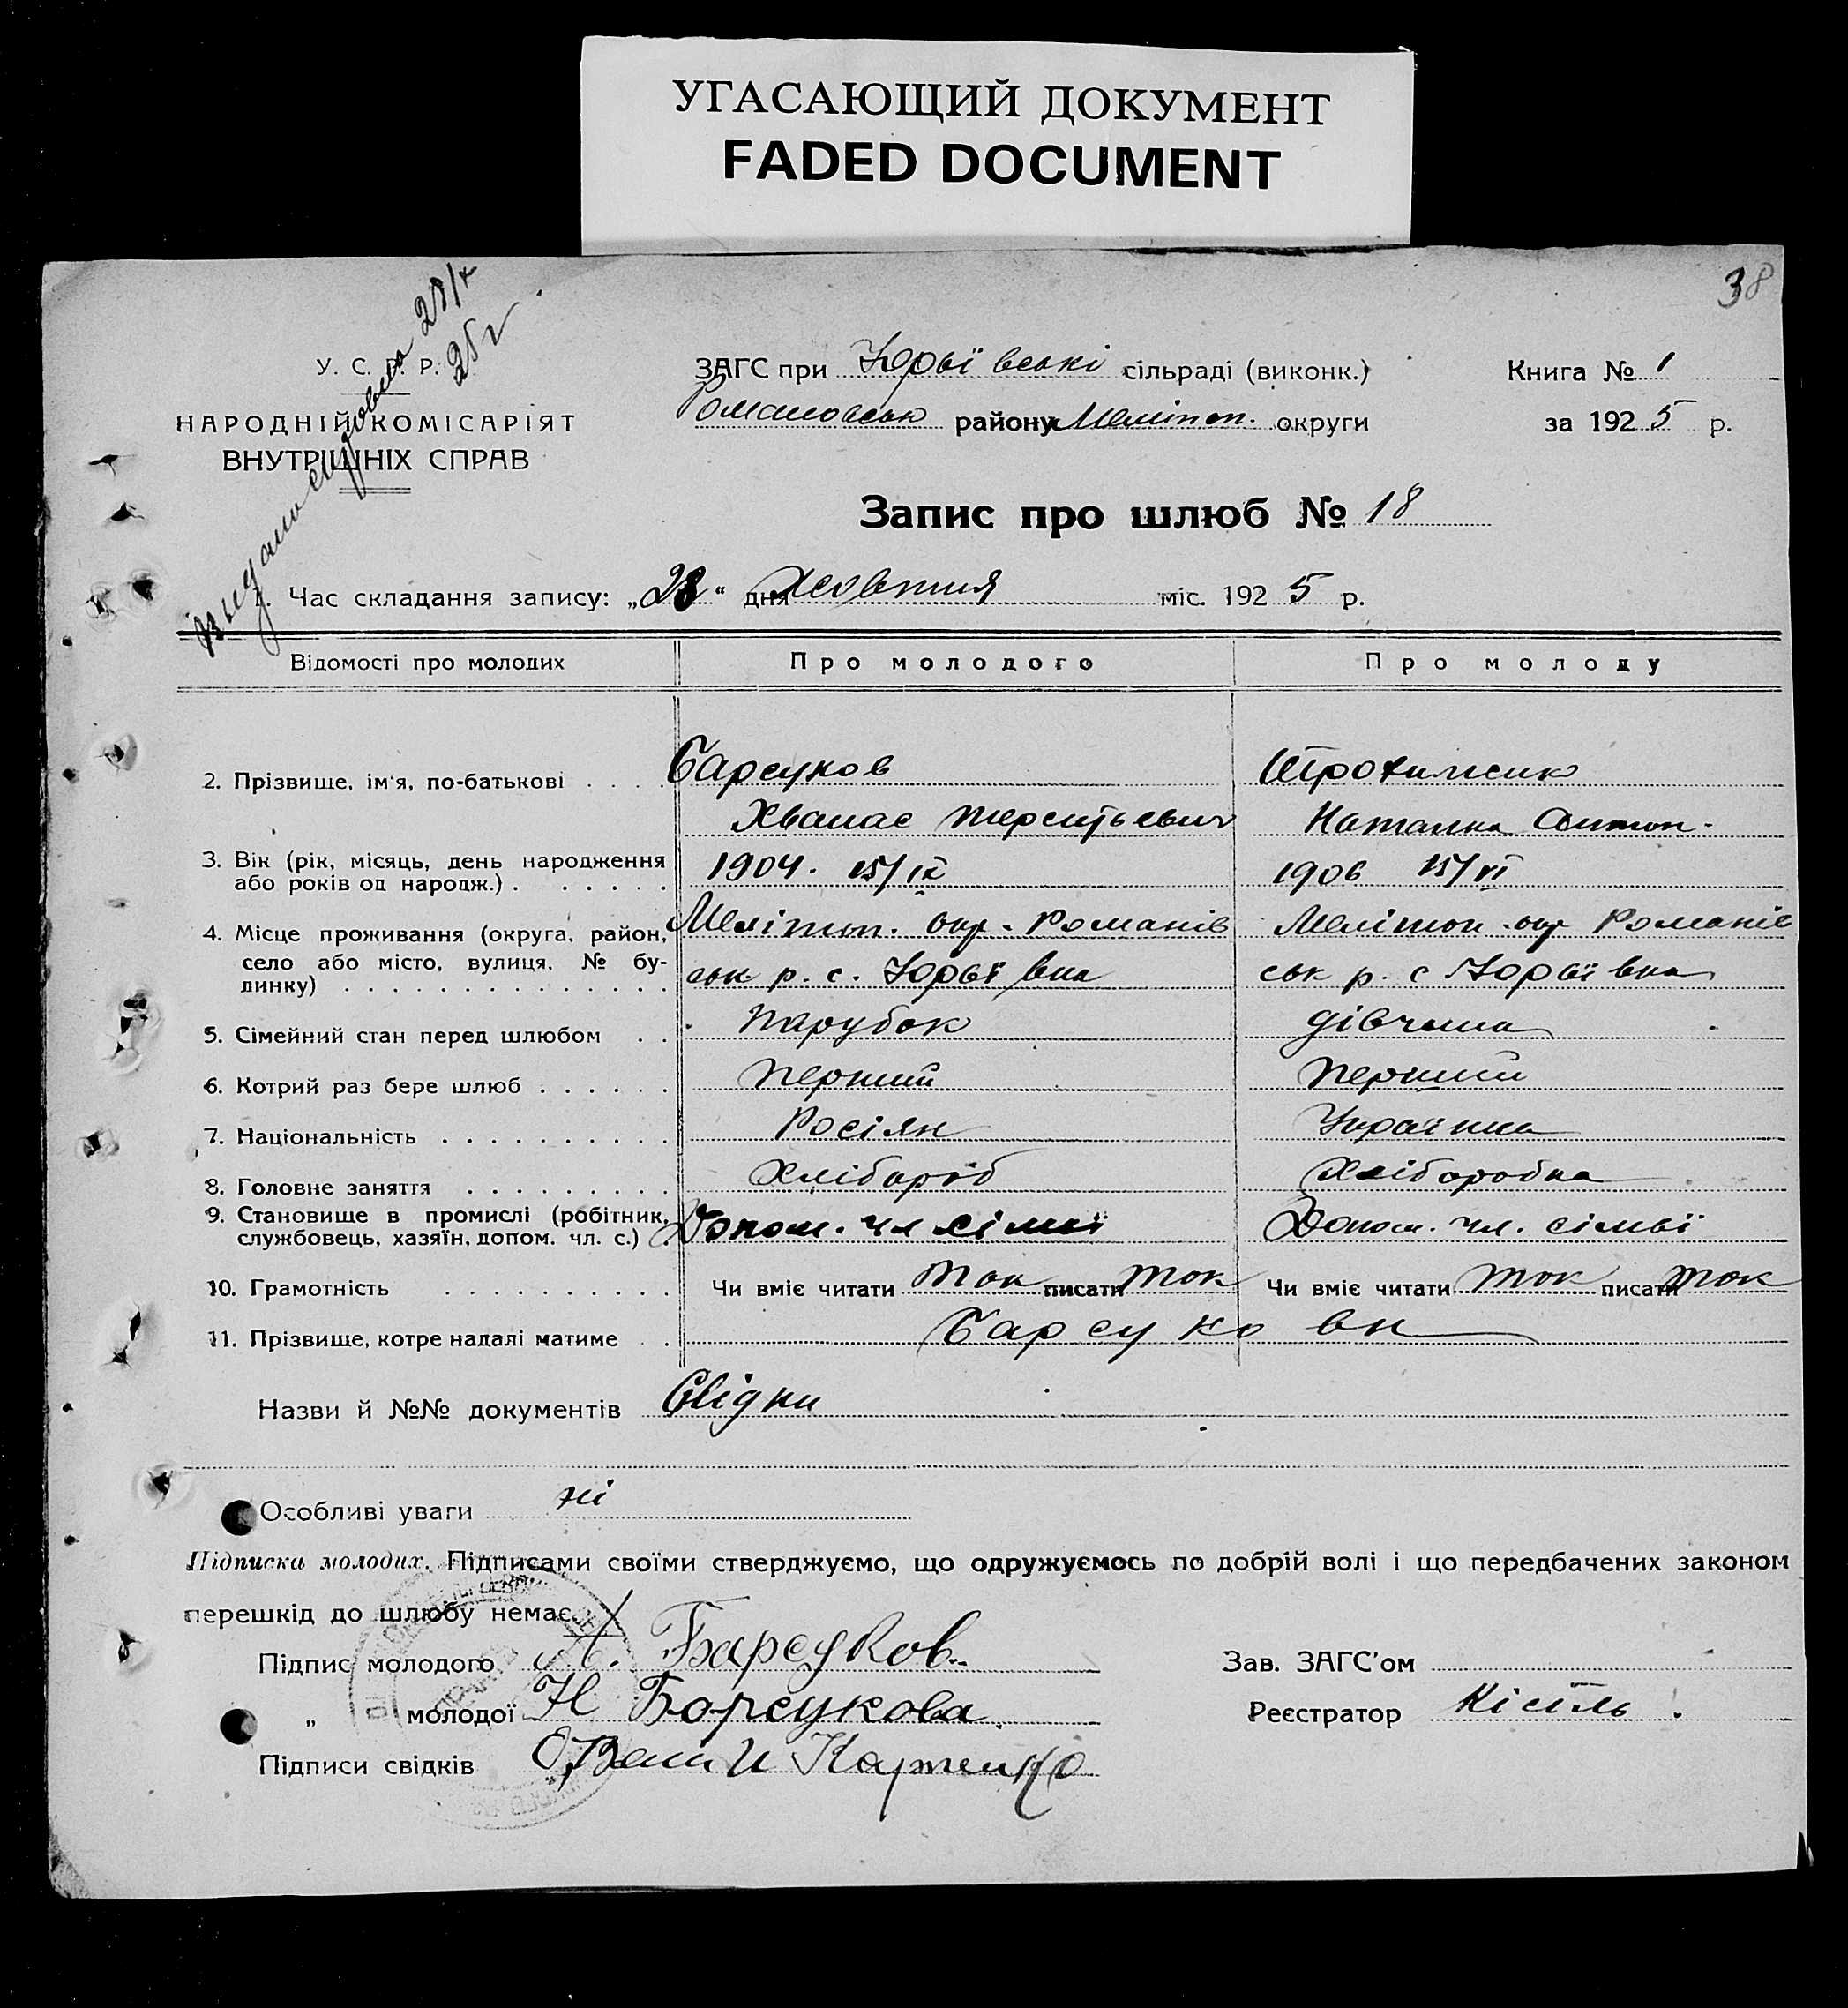 УГАСАЮЩИЙ ДОКУМЕНТ
FADED DOCUMENT
38
У. С. Р. Р.
НАРОДНІЙ КОМІСАРІЯТ
ВНУТРІШНІХ СПРАВ
ЗАГС при Юрьївські сільраді (виконк.)
Романовськ району Мелітоп. округи
Книга № 1
за 1925 р.
Запис про шлюб № 18
1. Час складання запису: „28“ дня жовтня міс. 1925 р.
Відомості про молодих Про молодого Про молоду
2. Прізвище, ім'я, по-батькові . . . . Барсуков Трохименко
Хванас Терентьевич Наталка Антон.
3. Вік (рік, місяць, день народження 1904. 15/IX 1906 15/VI
або років од народж.) . . . . . .
4. Місце проживання (округа, район, Мелітоп. окр. Романів Мелітоп. окр Романів
село або місто, вулиця, № бу- ськ р. с. Юрьївка ськ р. с Юрьївка
динку) . . . . . . . . . . . . . .
5. Сімейний стан перед шлюбом . . Парубок дівчина
6. Котрий раз бере шлюб . . . . . . Перший Перший
7. Національність . . . . . . . . . . Росіян Українка
8. Головне заняття . . . . . . . . . Хлібороб Хліборобка
9. Становище в промислі (робітник, Допом. чл сімьї Допом. чл. сімьї
службовець, хазяїн, допом. чл. с.) .
10. Грамотність . . . . . . . . . . Чи вміє читати так писати так Чи вміє читати так писати так
11. Прізвище, котре надалі матиме . . Барсукови
Назви й №№ документів Свідки
Особливі уваги ні
Підписка молодих. Підписами своїми стверджуємо, що одружуємось по добрій волі і що передбачених законом
перешкід до шлюбу немає.
Підпис молодого А. Барсуков. Зав. ЗАГС'ом
„ молодої Н Борсукова. Реєстратор Кісіль
Підписи свідків